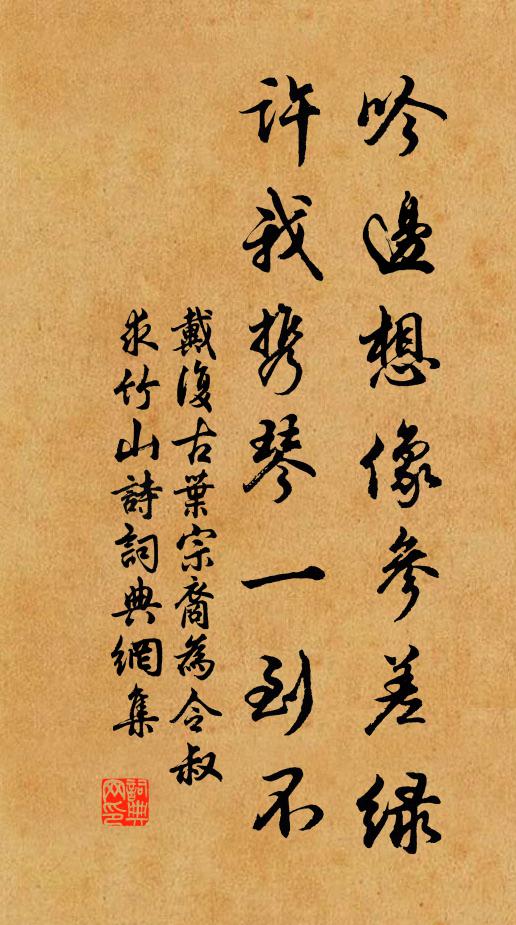 吟邊想像參差綠
許我携琴一到不
戴復古葉宗裔為令叔
求竹山詩詞典網集
詞典网印